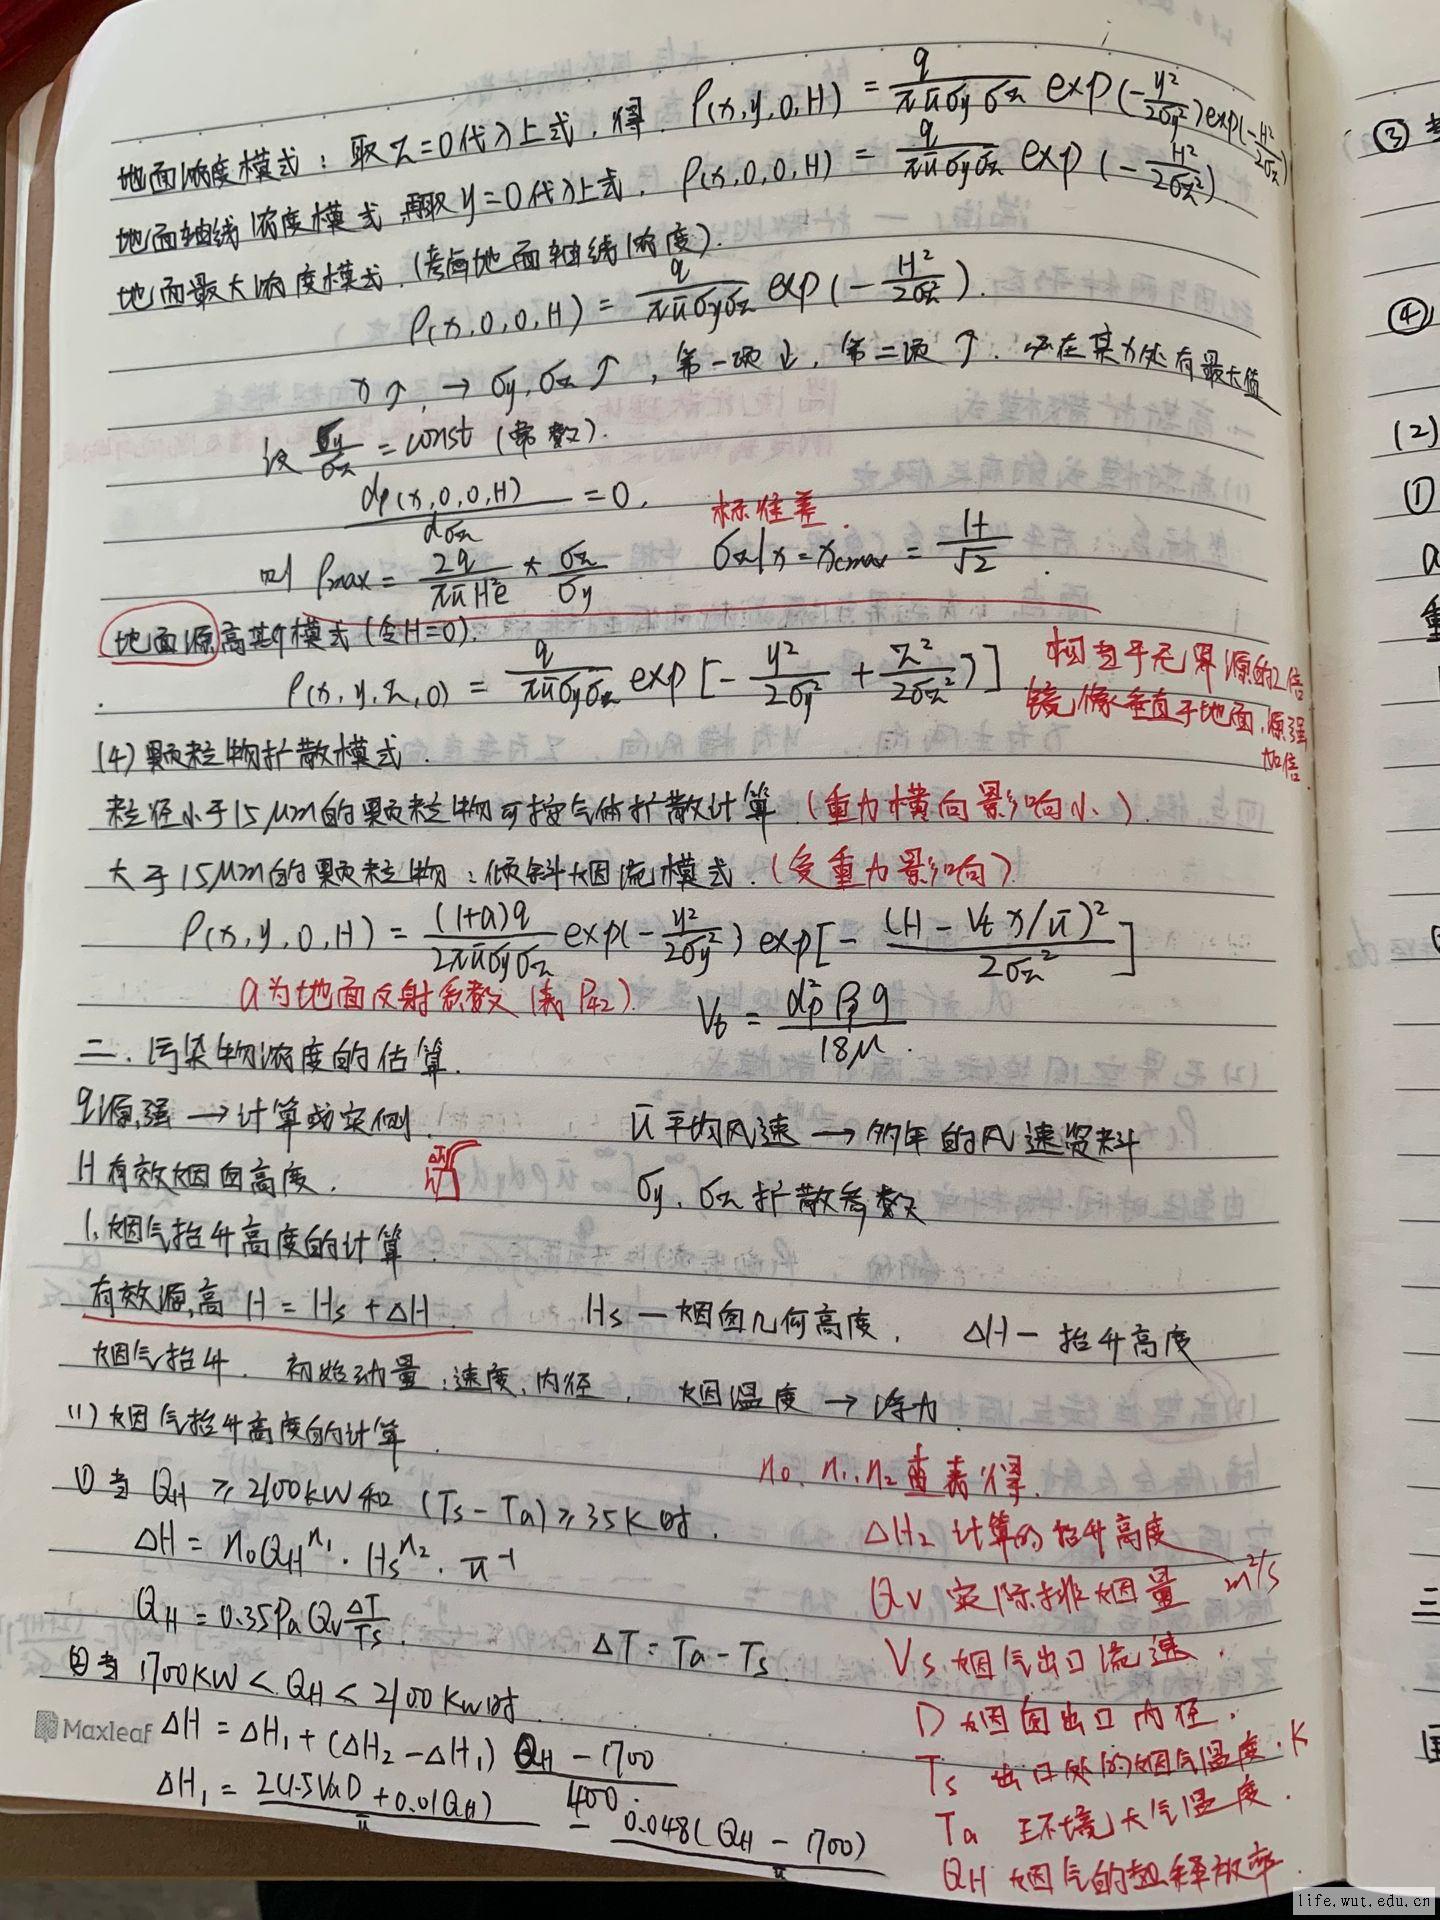 地面浓度模式：取z=0代入上式，得，ρ(x,y,0,H) = q/(πūσyσz) exp(-y²/2σy²)exp(-H²/2σz)
地面轴线浓度模式 再取y=0代入上式，ρ(x,0,0,H) = q/(πūσyσz) exp(-H²/2σz²).
地面最大浓度模式.(考虑地面轴线浓度).
ρ(x,0,0,H) = q/(πūσyσz) exp(-H²/2σz²).
x↑, → σy,σz↑, 第一项↓, 第二项↑. 必在某x处有最大值
设 σy/σz = const (常数).
dρ(x,0,0,H)/dσz = 0. 标准差.
则 ρmax = 2q/(πūH²e) * σz/σy σz|x=xcmax = H/√2.
地面源高斯模式(令H=0).
ρ(x,y,z,0) = q/(πūσyσz) exp[-y²/2σy² + z²/2σz²)]
相当于无界源的2倍
镜像垂直于地面,源强加倍
(4) 颗粒物扩散模式.
粒径小于15μm的颗粒物可按气体扩散计算 (重力横向影响小).
大于15μm的颗粒物：倾斜烟流模式.(受重力影响)
ρ(x,y,0,H) = (1+a)q/(2πūσyσz) exp(-y²/2σy²) exp[-(H-Vt x/ū)²/2σz²]
a为地面反射系数(表P42). Vt = dp²ρg/18μ.
二.污染物浓度的估算.
q源强 → 计算或实测. ū平均风速 → 多年的风速资料
H有效烟囱高度. ΔH σy、σz扩散参数
1.烟气抬升高度的计算.
有效源高 H = Hs + ΔH. Hs—烟囱几何高度. ΔH—抬升高度
烟气抬升. 初始动量:速度、内径. 烟温度 → 浮力
(1) 烟气抬升高度的计算.
①当 QH ≥ 2100kW 和 (Ts-Ta)≥35K时.
ΔH = n₀QH^n₁·Hs^n₂·ū⁻¹
QH = 0.35PaQv ΔT/Ts. ΔT = Ta-Ts
②当 1700KW < QH < 2100KW时.
Maxleaf ΔH = ΔH₁ + (ΔH₂-ΔH₁) (QH-1700)/400.
ΔH₁ = 2(1.5VsD+0.01QH)/ū - 0.048(QH-1700)/ū
n₀、n₁、n₂查表得.
ΔH₂ 计算的抬升高度
Qv 实际排烟量 m²/s
Vs 烟气出口流速.
D 烟囱出口内径.
Ts 出口处的烟气温度.K
Ta 环境大气温度.
QH 烟气的热释放率.
③
④
(2)
①
三
life.wut.edu.cn